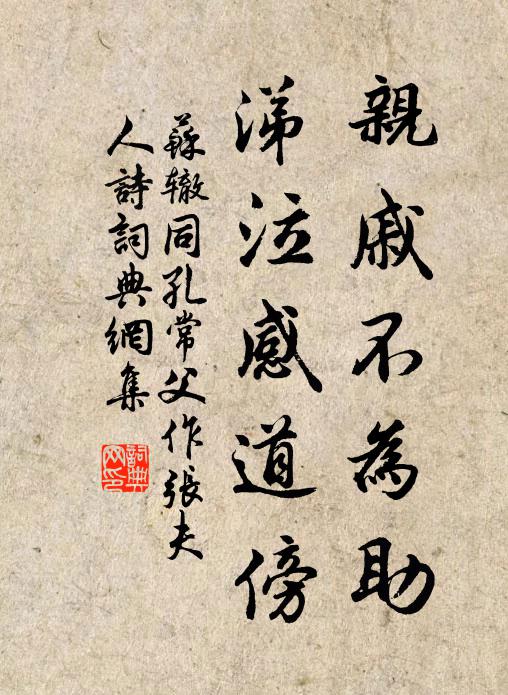 親戚不為助
涕泣感道傍
蘇辙同孔常父作張夫
人詩詞典網集
詞典
网印